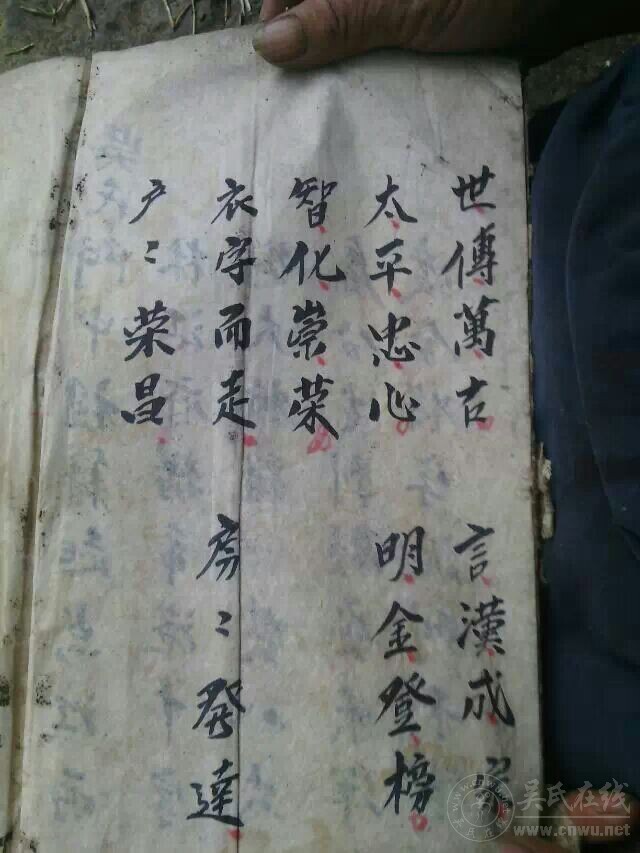 世傳萬古 言漢成
太平忠心 明金登榜
智化崇荣
衣字而走 房〻發達
户〻荣昌
吴氏在线
www.cnwu.net